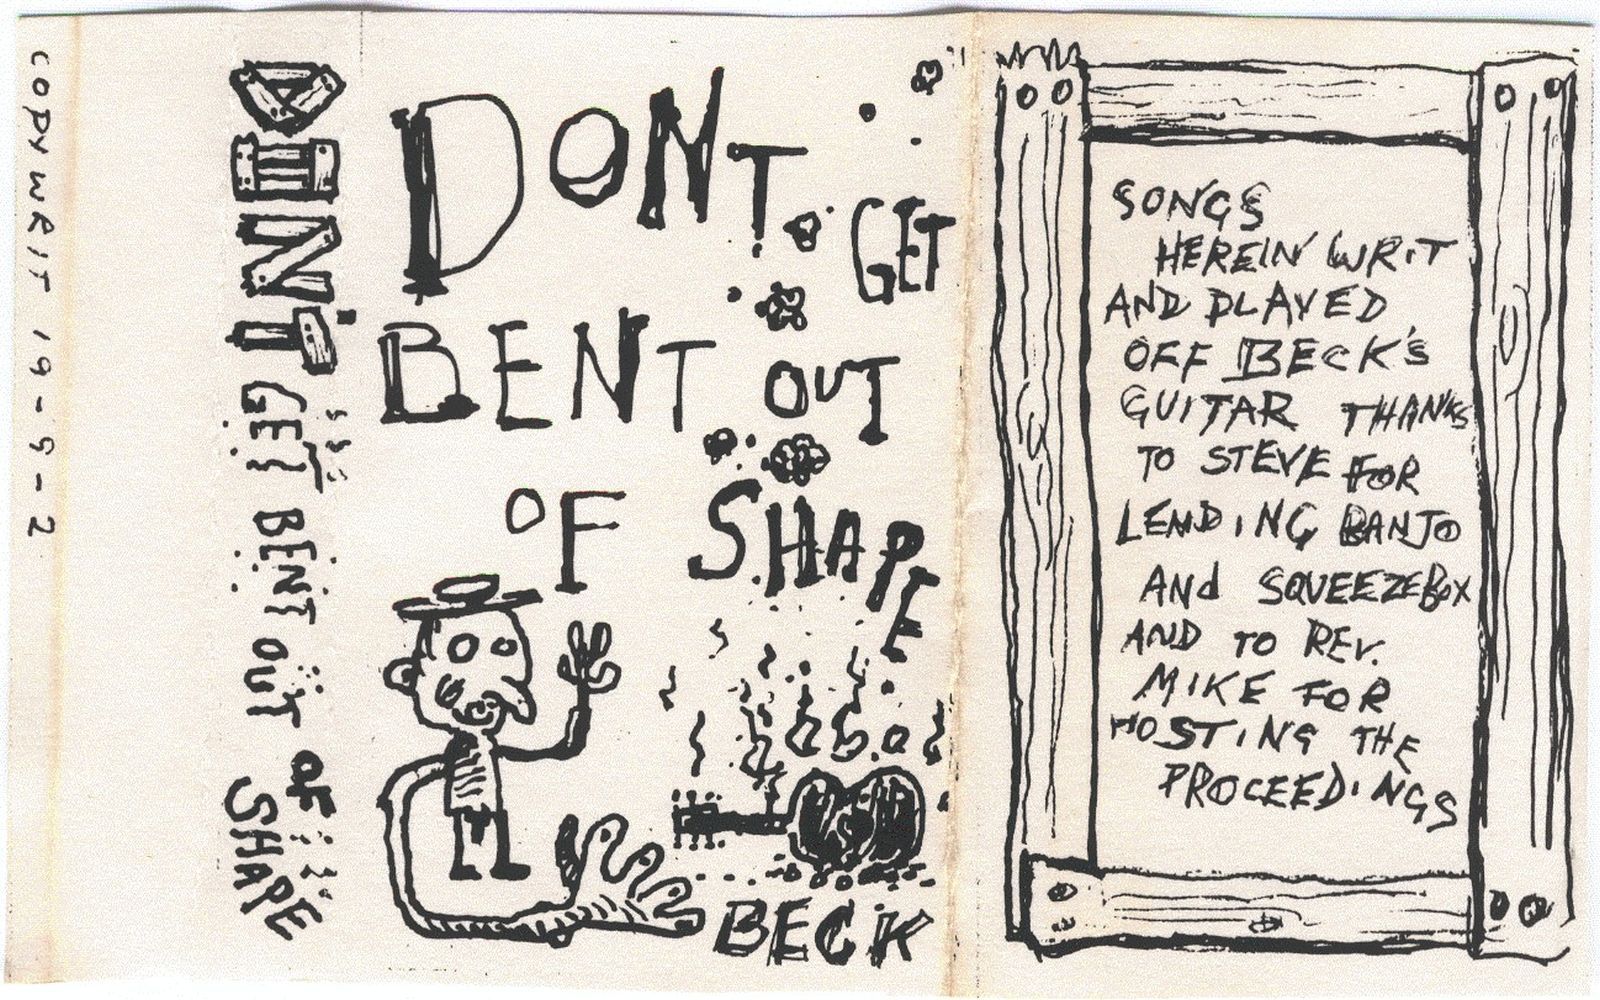 COPYWRIT 19-9-2
DONT GET BENT OUT OF SHAPE
DONT
GET
BENT OUT
OF SHAPE
BECK
SONGS
HEREIN WRIT
AND PLAYED
OFF BECK'S
GUITAR THANKS
TO STEVE FOR
LENDING BANJO
AND SQUEEZEBOX
AND TO REV.
MIKE FOR
HOSTING THE
PROCEEDINGS